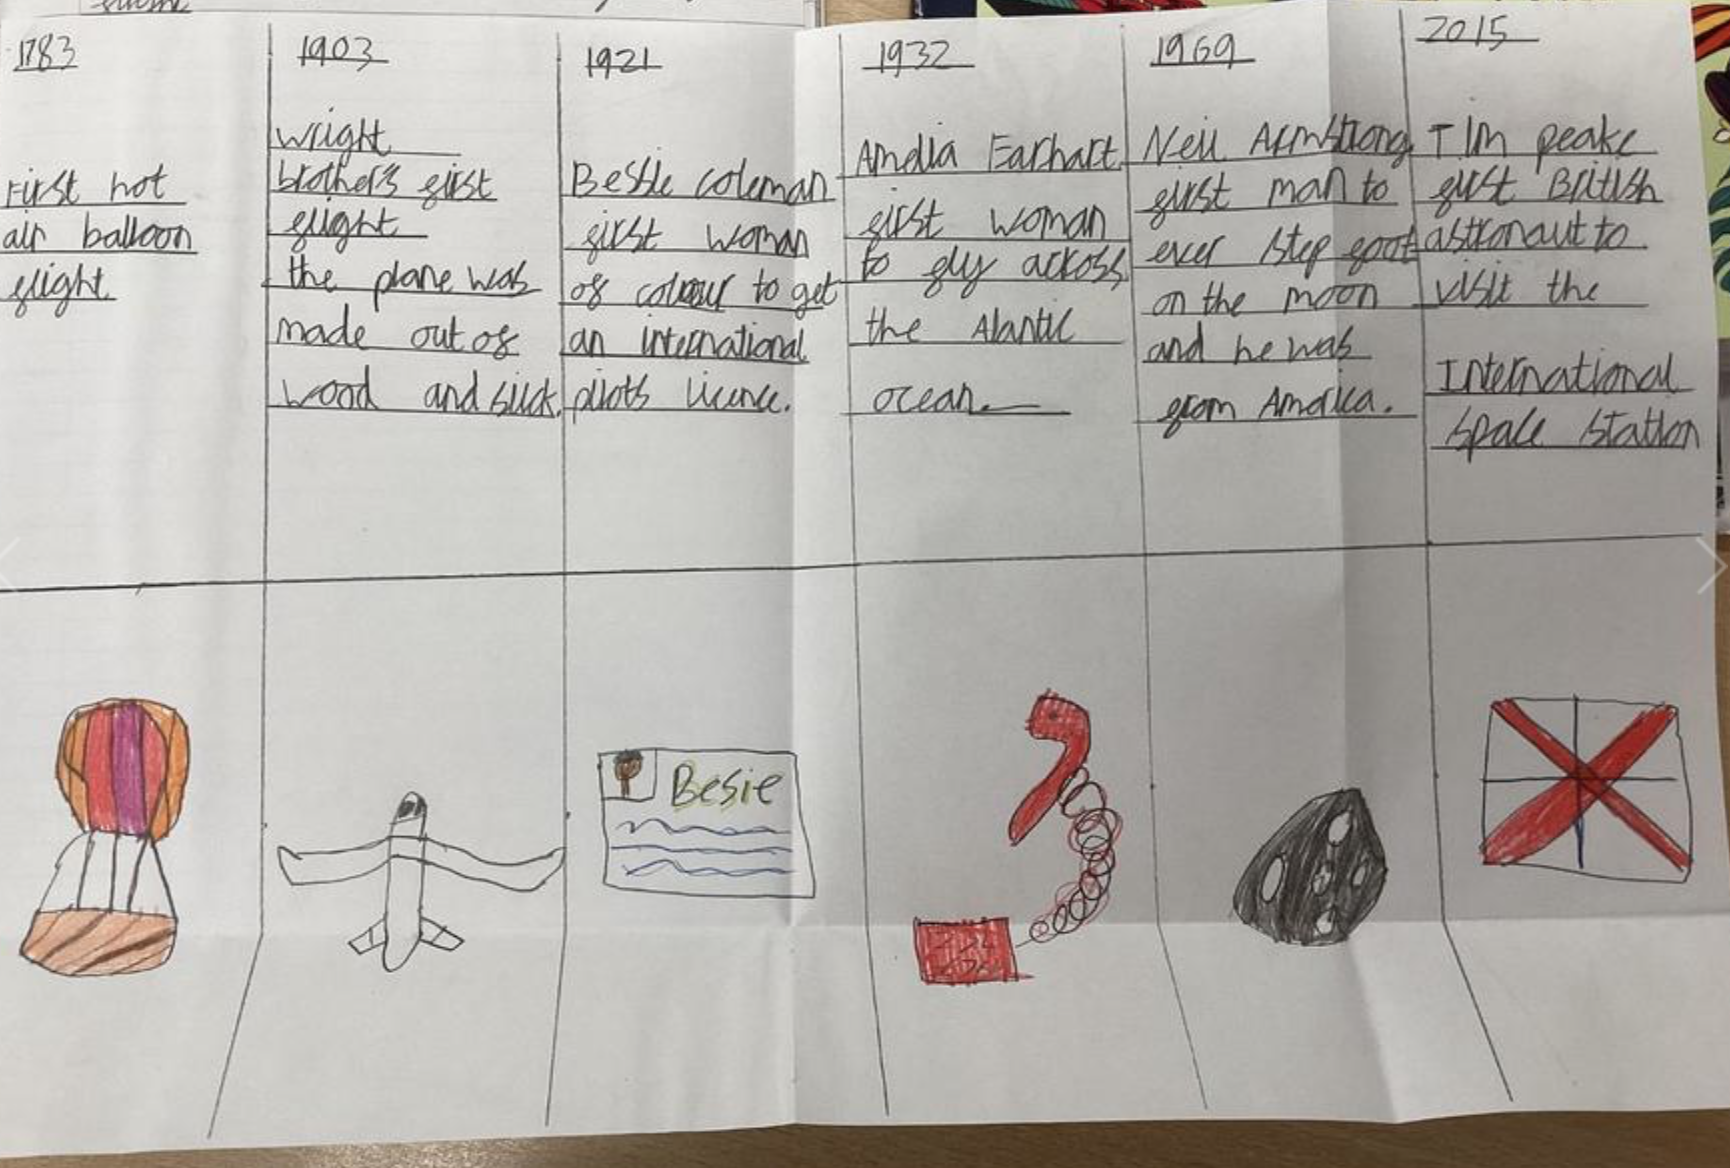 1783
First hot
air balloon
flight
1903
wright
brother's first
flight
the plane was
made out of
wood and silck.
1921
Bessie coleman
first woman
of colour to get
an international
pilots licence.
1932
Amelia Earhart
first woman
to fly across
the Alantic
ocean.
1969
Neil Armstrong
first man to
ever step foot
on the moon
and he was
from America.
2015
Tim peake
first British
astronaut to
visit the
International
space station
Besie